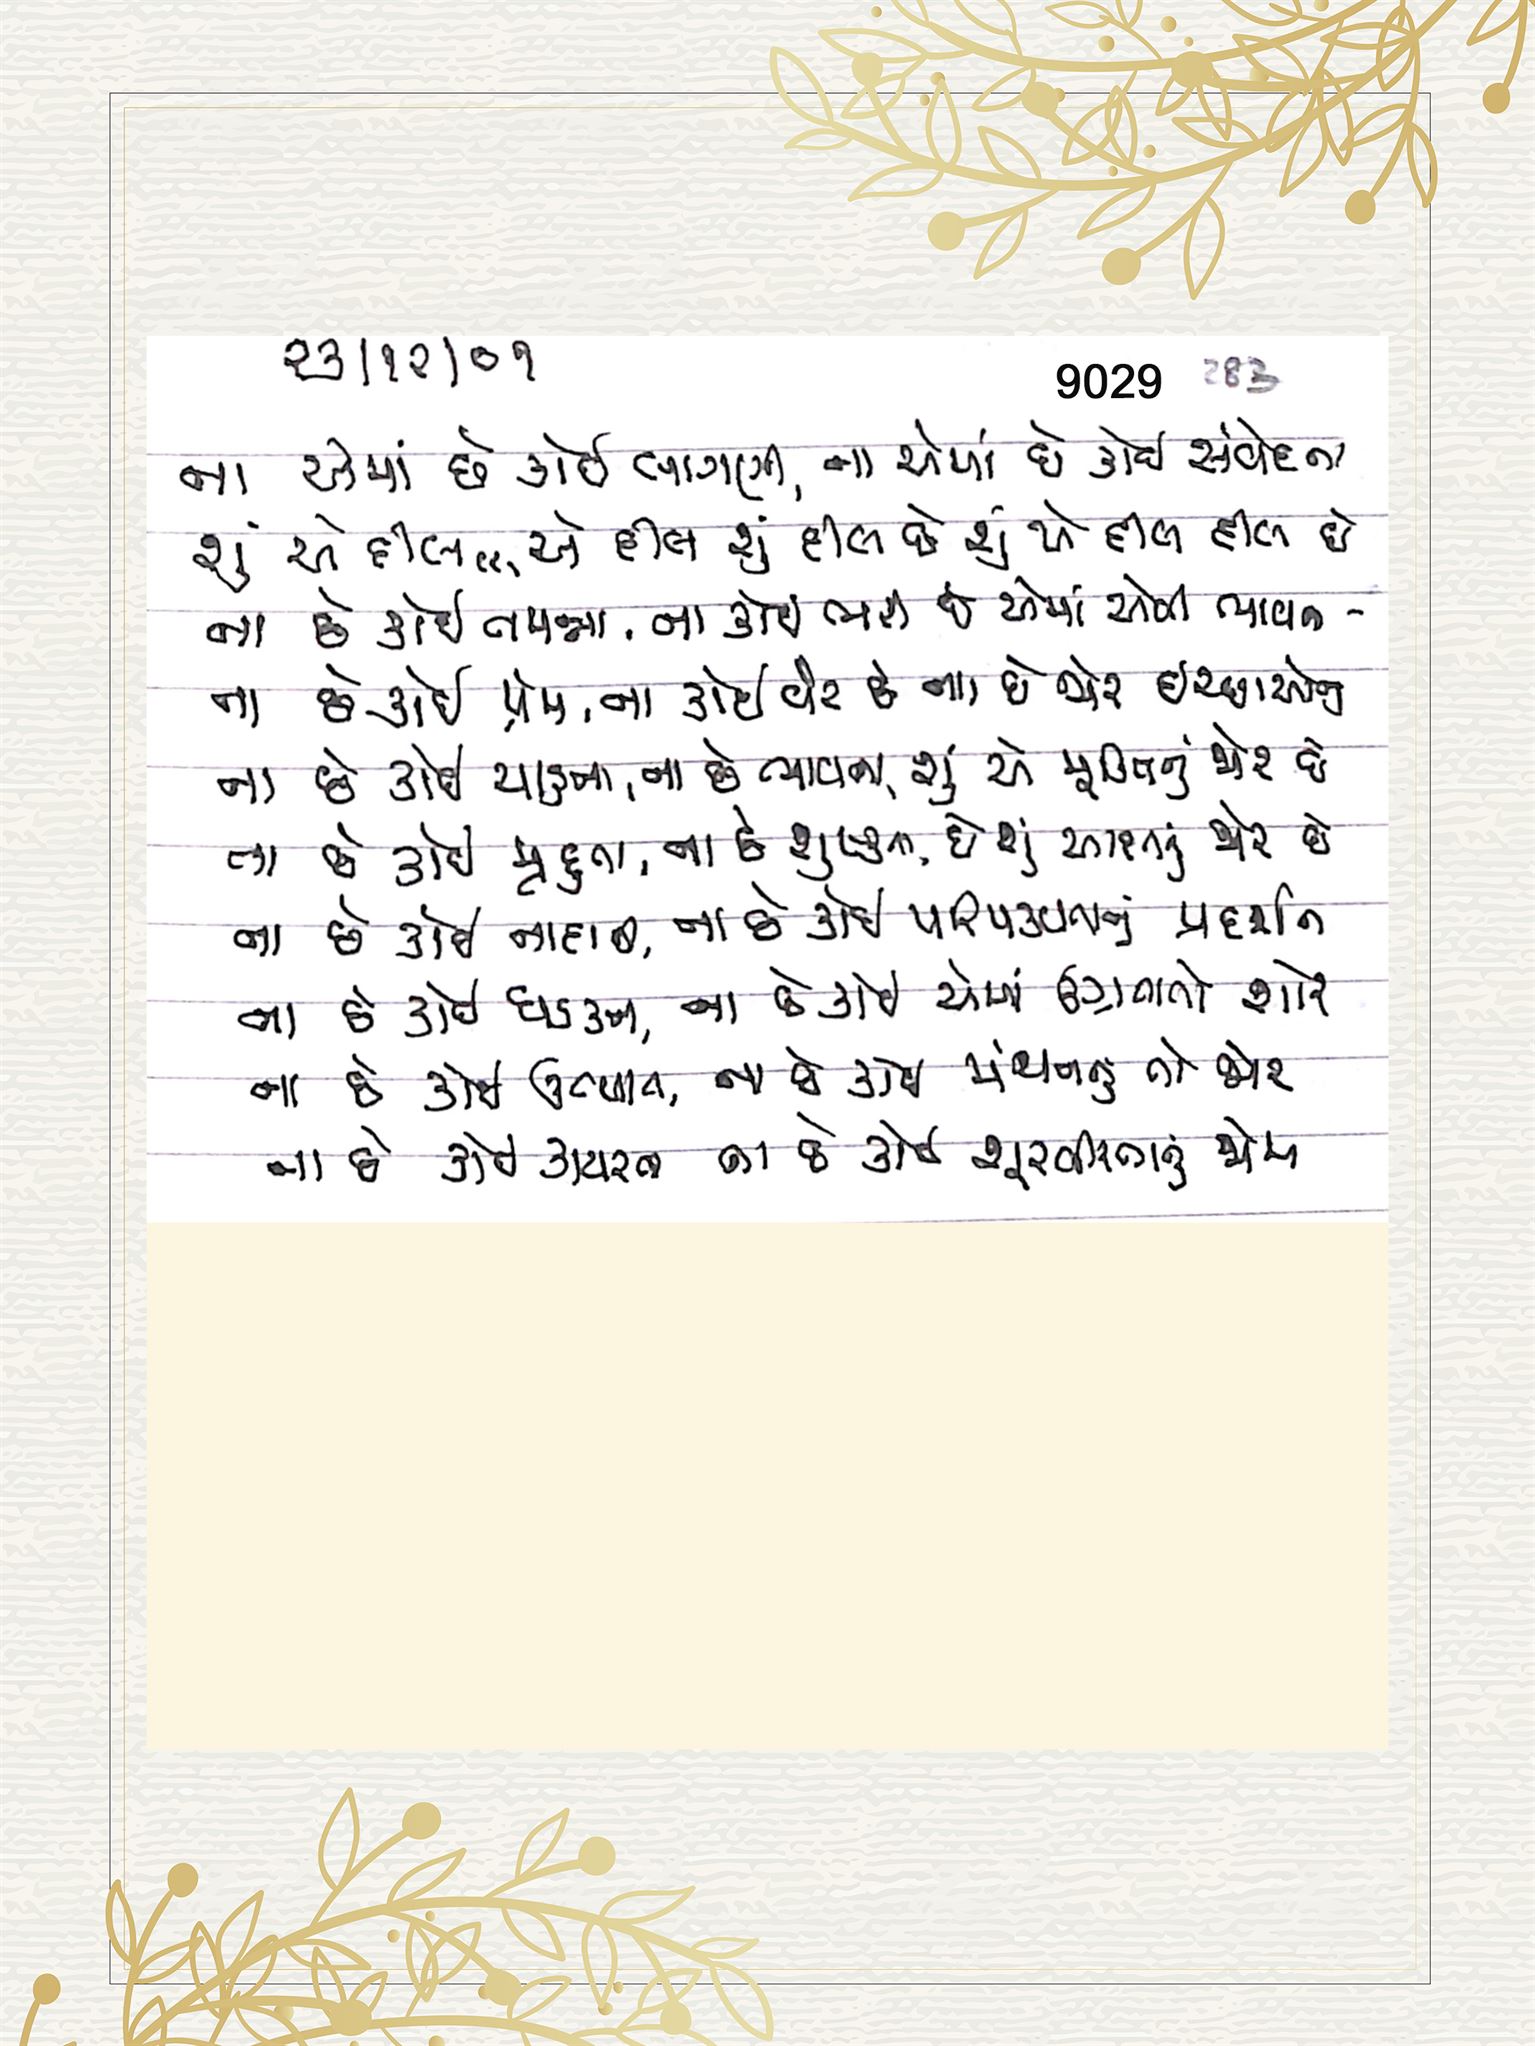 ૨૩/૧૨/૦૧
9029 283
ના એમાં છે કોઈ લાગણી, ના એમાં છે કોઈ સંવેદના
શું એ દીલ... એ દીલ શું દીલ છે શું એ દીલ દીલ છે
ના છે કોઈ તમન્ના, ના કોઈ ભરી છે એમાં એવી ભાવના
ના છે કોઈ પ્રેમ, ના કોઈ વૈર છે ના છે જોર ઇચ્છાઓનું
ના છે કોઈ યાચના, ના છે ભાવના, શું એ મૂડીવાનું જોર છે
ના છે કોઈ મૃદુતા, ના છે શુષ્કતા, છે શું આદતનું જોર છે
ના છે કોઈ નાદાન, ના છે કોઈ પરિપકવતાનું પ્રદર્શન
ના છે કોઈ ધડકન, ના છે કોઈ એમાં ઉગ્રતાનો શોર
ના છે કોઈ ઉત્પાત, ના છે કોઈ મંથનનું તો જોર
ના છે કોઈ કાયરતા ના છે કોઈ શૂરવીરતાનું જોમ